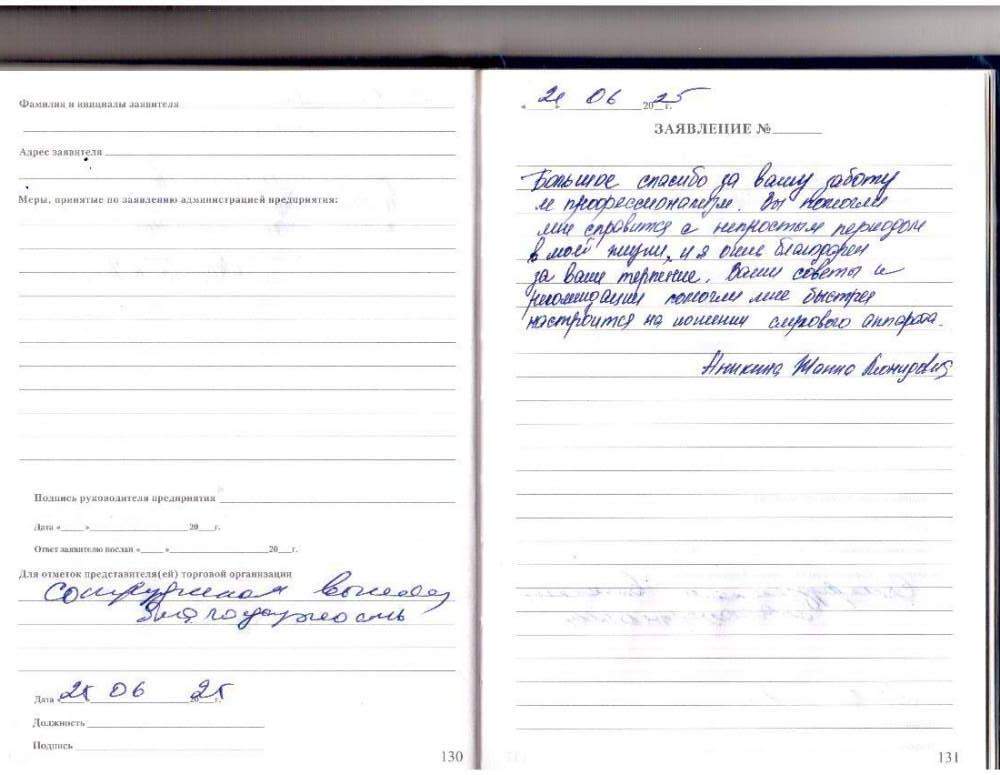 Фамилия и инициалы заявителя
Адрес заявителя
Меры, принятые по заявлению администрацией предприятия:
Подпись руководителя предприятия
Дата «____»____________________20___г.
Ответ заявителю послан «____»____________________20___г.
Для отметок представителя(ей) торговой организации
благодарность
Дата « 06 20 25 г.
Должность
Подпись
130
« » 06 20 25 г.
ЗАЯВЛЕНИЕ №
Большое спасибо за вашу работу
и профессионализм. Вы помогли
мне справится с непростым периодом
в моей жизни, и я очень благодарен
за ваше терпение. Ваши советы и
рекомендации помогли мне быстрее
настроится на ношении слухового аппарата.
Аникина Жанна
131